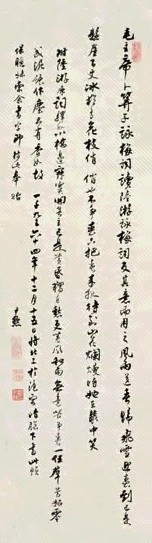 毛主席卜算子詠梅詞讀陸游詠梅詞反其意而用之風雨送春歸飛雪迎春到已是
懸崖百丈冰猶有花枝俏俏也不爭春只把春來報待到山花爛熳時她在叢中笑
附陸游原詞驛外斷橋邊寂寞開無主已是黃昏獨自愁更著風和雨無意苦爭春一任羣芳妒零
落成泥碾作塵只有香如故 一千九百六十四年十二月十五日將北上於滬寓燈下書此幀
尹默